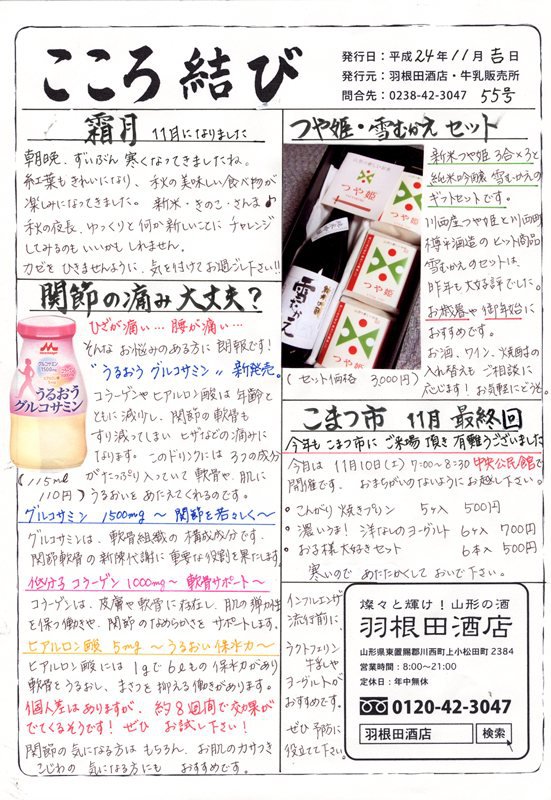 こころ結び
発行日：平成24年11月吉日
発行元：羽根田酒店・牛乳販売所
問合先：0238-42-3047 55号
霜月 11月になりました
朝晩、ずいぶん寒くなってきましたね。
紅葉もきれいになり、秋の美味しい食べ物が
楽しみになってきました。新米・きのこ・さんま♪
秋の夜長、ゆっくりと何か新しいことにチャレンジ
してみるのもいいかもしれません。
カゼをひきませんように、気を付けてお過ごし下さい!!
関節の痛み大丈夫?
ひざが痛い… 腰が痛い…
そんなお悩みのある方に朗報です!
"うるおうグルコサミン" 新発売。
コラーゲンやヒアルロン酸は年齢と
ともに減少し、関節の軟骨も
すり減ってしまいヒザなどの痛みに
なります。このドリンクには3つの成分
がたっぷり入っていて軟骨や、肌に
うるおいをあたえてくれるのです。
morinaga
グルコサミン
1500mg
うるおう
グルコサミン
(115ml
110円)
グルコサミン 1500mg〜関節を若々しく〜
グルコサミンは、軟骨組織の構成成分です。
関節軟骨の新陳代謝に重要な役割を果たします。
低分子コラーゲン1000mg〜軟骨サポート〜
コラーゲンは、皮膚や軟骨に存在し、肌の弾力性
を保つ働きや、関節のなめらかさをサポートします。
ヒアルロン酸 5mg〜うるおい保水力〜
ヒアルロン酸には1gで6ℓもの保水力があり
軟骨をうるおし、まさつを抑える働きがあります。
個人差はありますが、約8週間で効果が
でてくるそうです! ぜひお試し下さい!
関節の気になる方はもちろん、お肌のカサつき
こじわの気になる方にもおすすめです。
つや姫・雪むかえセット
つや姫
つや姫
雪むかえ
(セット価格 3,000円)
新米つや姫3合×3と
純米吟醸雪むかえの
ギフトセットです。
川西産つや姫と川西町
樽平酒造のヒット商品
雪むかえのセットは、
昨年も大好評でした。
お歳暮や御年始に
おすすめです。
お酒、ワイン、焼酎の
入れ替えもご相談に
応じます! お気軽にどうぞ。
こまつ市 11月 最終回
今年もこまつ市にご来場頂き有難うございました
今月は11月10日(土)7:00〜8:30中央公民館で
開催です。おまちがいのないようにお越し下さい。
・こんがり焼きプリン 5ヶ入 500円
・濃いうま! 洋なしのヨーグルト 6ヶ入 700円
・おる様大好きセット 6本入 500円
寒いのであたたかくしておいで下さい。
インフルエンザ
流行前に、
ラクトフェリン
牛乳や
ヨーグルトが
おすすめです。
ぜひ予防に
役立てて下さい。
燦々と輝け！山形の酒
羽根田酒店
山形県東置賜郡川西町上小松田町2384
営業時間：8:00〜21:00
定休日：年中無休
0120-42-3047
羽根田酒店 検索